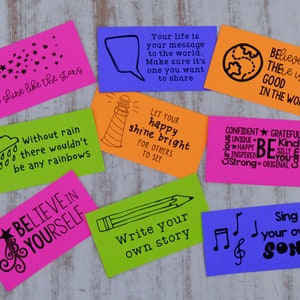 shine like the stars
Your life is
your message
to the world.
Make sure it's
one you
want to share
BELIEVE
THERE IS
GOOD
IN THE WORLD
Without rain
there wouldn't
be any rainbows
LET YOUR
happy
shine bright
FOR OTHERS
TO SEE
CONFIDENT
GRATEFUL
UNIQUE
HAPPY
INSPIRED
BE
Kind
SILLY
Strong
ORIGINAL
BELIEVE IN
YOURSELF
Write your
own story
Sing
your own
SONG